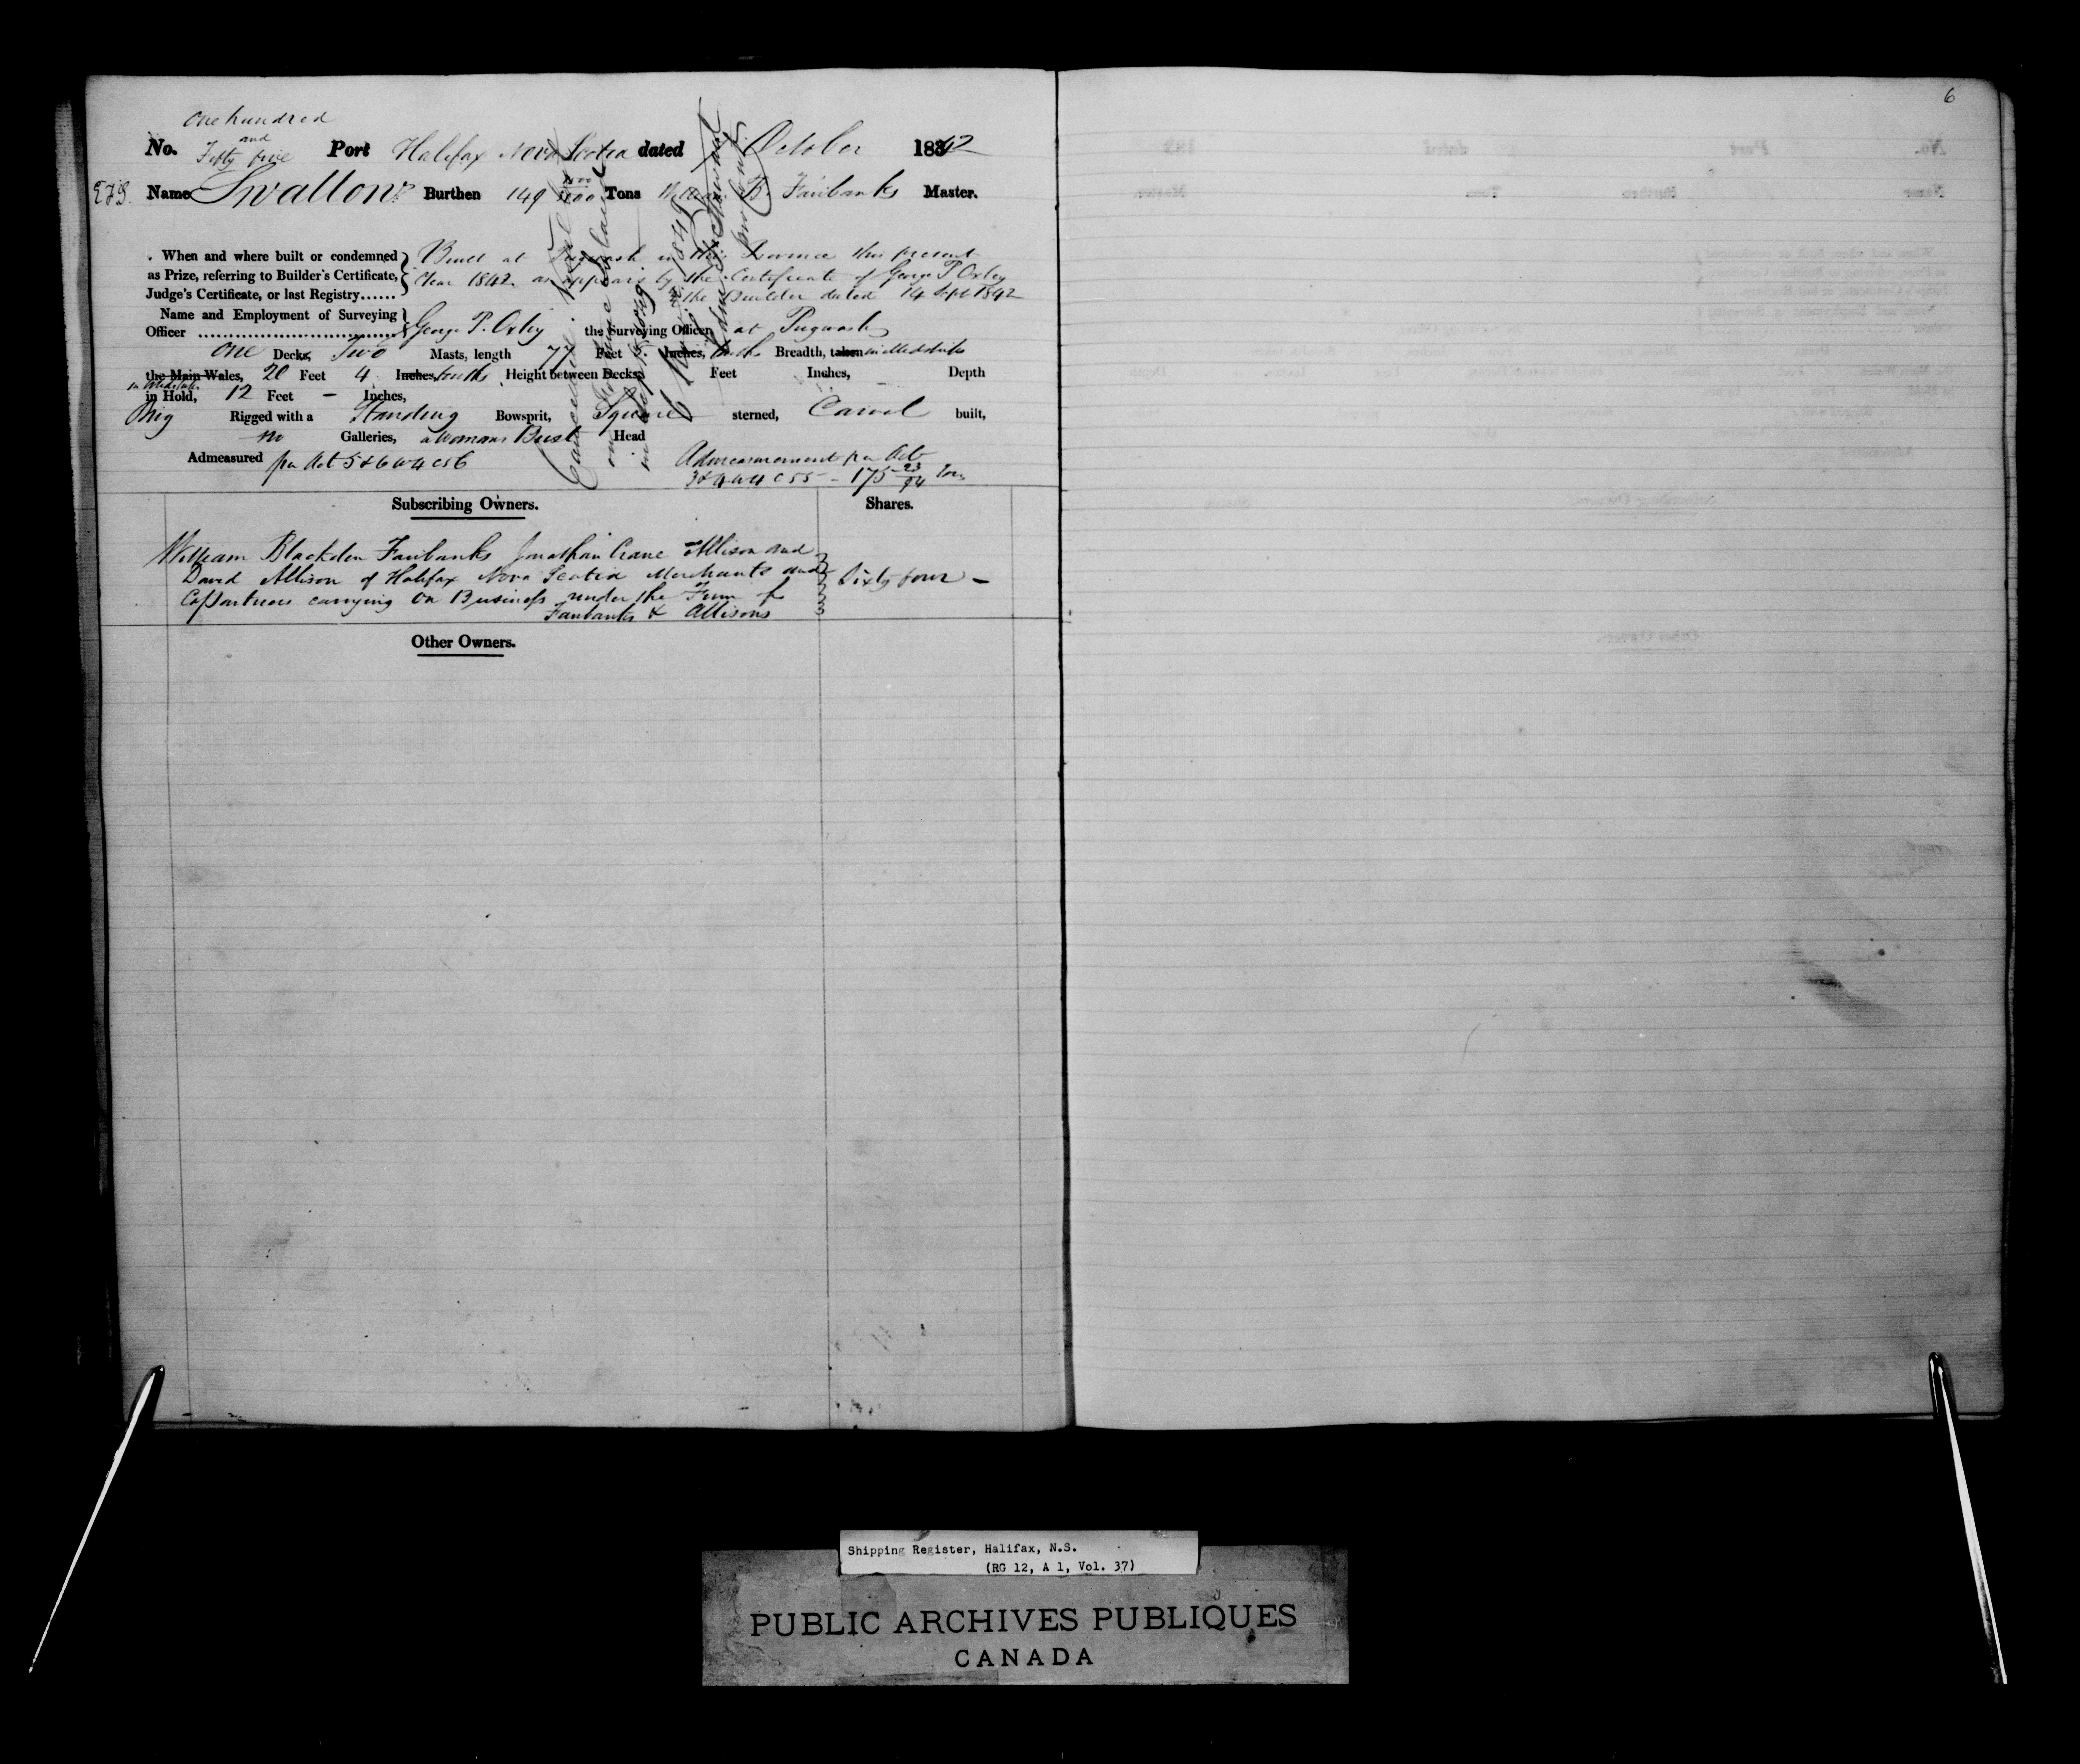 6
one hundred
and
No. Fifty five Port Halifax Nova Scotia dated October 1842
EJS. Name Swallow Burthen 149 Tons William B. Fairbanks Master.
When and where built or condemned as Prize, referring to Builder's Certificate, Judge's Certificate, or last Registry......
Built at Pugwash in this Province this present
Year 1842. as appears by the Certificate of George P Oxley
the Builder dated 14 Sept 1842
Name and Employment of Surveying
Officer George P. Oxley the Surveying Officer, at Pugwash
one Decks, Two Masts, length 77 Feet 5. Inches, tenths Breadth, taken in Midships
the Main Wales, 20 Feet 4 Inches, tenths, Height between Decks, Feet Inches, Depth
in Midships
in Hold, 12 Feet – Inches,
Brig Rigged with a Standing Bowsprit, Square sterned, Carvel built,
no Galleries, a Womans Bust Head
Admeasured per Act 5 & 6 W 4 C 56
Admeasurement per Act
3 & 4 W 4 C 55 - 175 23/94 Tons
Subscribing Owners. Shares.
William Blackden Fairbanks Jonathan Crane Allison and
David Allison of Halifax Nova Scotia Merchants and Sixty four –
Copartners carrying on Business under the Firm of
Fairbanks & Allisons
Other Owners.
Shipping Register, Halifax, N.S.
(RG 12, A 1, Vol. 37)
PUBLIC ARCHIVES PUBLIQUES
CANADA